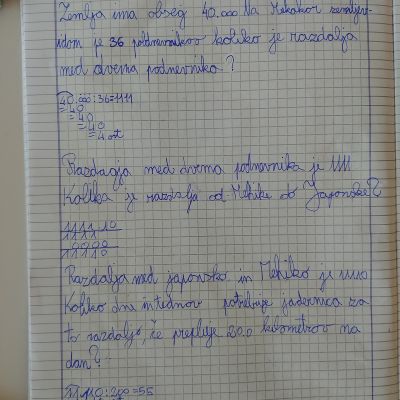 Zemlja ima obseg 40.000 Na
vidom je 36 poldnevnikov koliko je razdalja
med dvema podnevnika?
40.000:36=1111
40
40
40
4 ost
Razdagja med dvema podnevnika je 1111
Kolika je razdalja od Mehike do Japonske?
1111 10
11110
Razdalja med japonsko in Mehiko je 11110
Koliko dni in tednov potrebuje jadernica za
to razdaljo, če prepluje 200 kilometrov na
dan?
11110:200=55